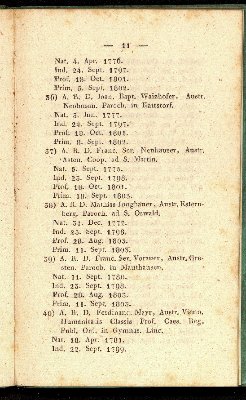 — 11 —
Nat. 4. Apr. 1776.
Ind. 24. Sept. 1797.
Prof. 18. Oct. 1801.
Prim. 5. Sept. 1802.
36) A. R. D. Joan. Bapt. Waizhofer, Austr.
Paroch. in Kattstorf.
Nat. 5. Jun. 1777.
Ind. 24. Sept. 1797.
Prof. 18. Oct. 1801.
Prim. 8. Sept. 1802.
37) A. R. D. Franc. Ser. Neuhauser, Austr.
Asten. Coop. ad S. Martin.
Nat. 5. Sept. 1775.
Ind. 23. Sept. 1798.
Prof. 18. Oct. 1801.
Prim. 19. Sept. 1803.
38) A. R. D. Mathias Jungbauer, Austr. Eatern-
berg, Paroch. ad S. Oswald.
Nat. 31. Dec. 1777.
Ind. 23. Sept. 1798.
Prof. 28. Aug. 1803.
Prim. 11. Sept. 1803.
39) A. R. D. Franc. Ser. Vorwerk, Austr.
Paroch. in Mauthausen.
Nat. 11. Sept. 1780.
Ind. 23. Sept. 1798.
Prof. 28. Aug. 1803.
Prim. 11. Sept. 1803.
40) A. R. D. Ferdinand. Mayr, Austr. Vienn.
Humanitatis Classis Prof. Caes. Reg.
Publ. Ord. in Gymnas. Linc.
Nat. 18. Apr. 1781.
Ind. 22. Sept. 1799.